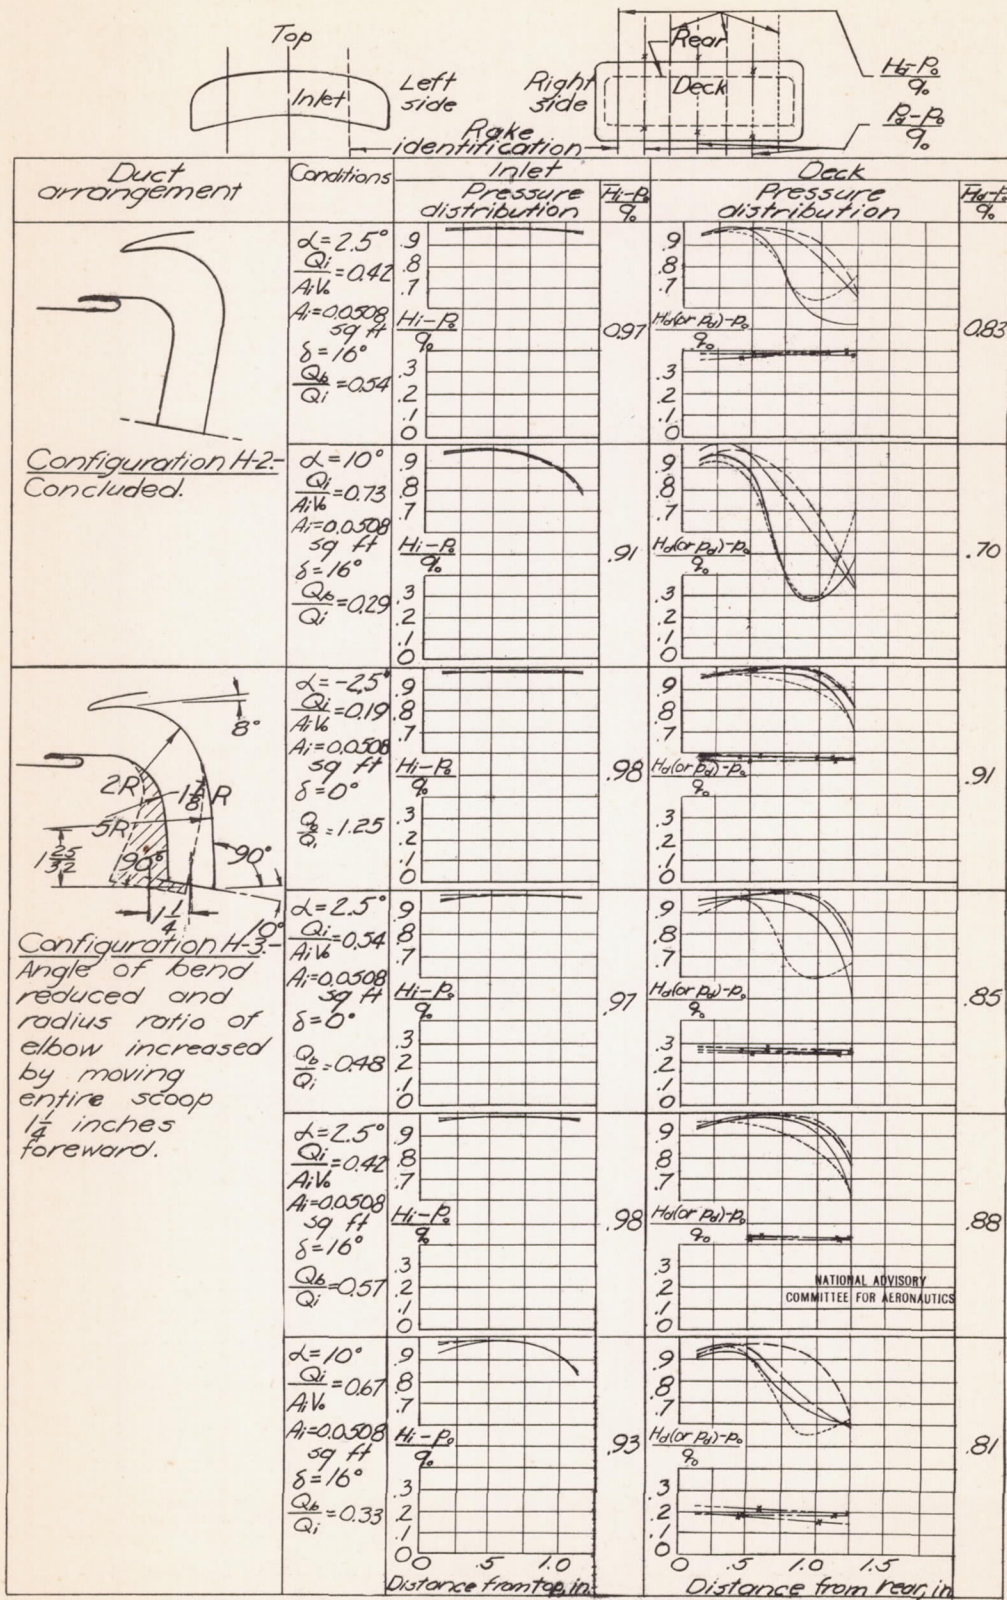 Top
Inlet
Left side
Right side
Rear
Deck
Rake identification
Hd-Po/qo
pd-po/qo
Duct arrangement
Conditions
Inlet
Pressure distribution
H̅i-Po/qo
Deck
Pressure distribution
H̅d-P
qo
Configuration H-2.-
Concluded.
α=2.5°
Qi/AiVo=0.42
Ai=0.0508
sq ft
δ=16°
Qb/Qi=0.54
.9
.8
.7
Hi-Po/qo
.3
.2
.1
0
0.97
.9
.8
.7
Hd(or pd)-po/qo
.3
.2
.1
0
0.83
α=10°
Qi/AiVo=0.73
Ai=0.0508
sq ft
δ=16°
Qb/Qi=0.29
.9
.8
.7
Hi-Po/qo
.3
.2
.1
0
.91
.9
.8
.7
Hd(or pd)-po/qo
.3
.2
.1
0
.70
8°
2R
1 5/8 R
5R
1 25/32
90°
90°
1 1/4
10°
Configuration H-3.-
Angle of bend
reduced and
radius ratio of
elbow increased
by moving
entire scoop
1 1/4 inches
foreward.
α=-2.5°
Qi/AiVo=0.19
Ai=0.0508
sq ft
δ=0°
Qb/Qi=1.25
.9
.8
.7
Hi-Po/qo
.3
.2
.1
0
.98
.9
.8
.7
Hd(or pd)-po/qo
.3
.2
.1
0
.91
α=2.5°
Qi/AiVo=0.54
Ai=0.0508
sq ft
δ=0°
Qb/Qi=0.48
.9
.8
.7
Hi-Po/qo
.3
.2
.1
0
.97
.9
.8
.7
Hd(or pd)-po/qo
.3
.2
.1
0
.85
α=2.5°
Qi/AiVo=0.42
Ai=0.0508
sq ft
δ=16°
Qb/Qi=0.57
.9
.8
.7
Hi-Po/qo
.3
.2
.1
0
.98
.9
.8
.7
Hd(or pd)-po/qo
.3
.2
.1
0
.88
NATIONAL ADVISORY
COMMITTEE FOR AERONAUTICS
α=10°
Qi/AiVo=0.67
Ai=0.0508
sq ft
δ=16°
Qb/Qi=0.33
.9
.8
.7
Hi-Po/qo
.3
.2
.1
0
.93
.9
.8
.7
Hd(or pd)-po/qo
.3
.2
.1
0
.81
0 .5 1.0
Distance from top, in.
0 .5 1.0 1.5
Distance from rear, in